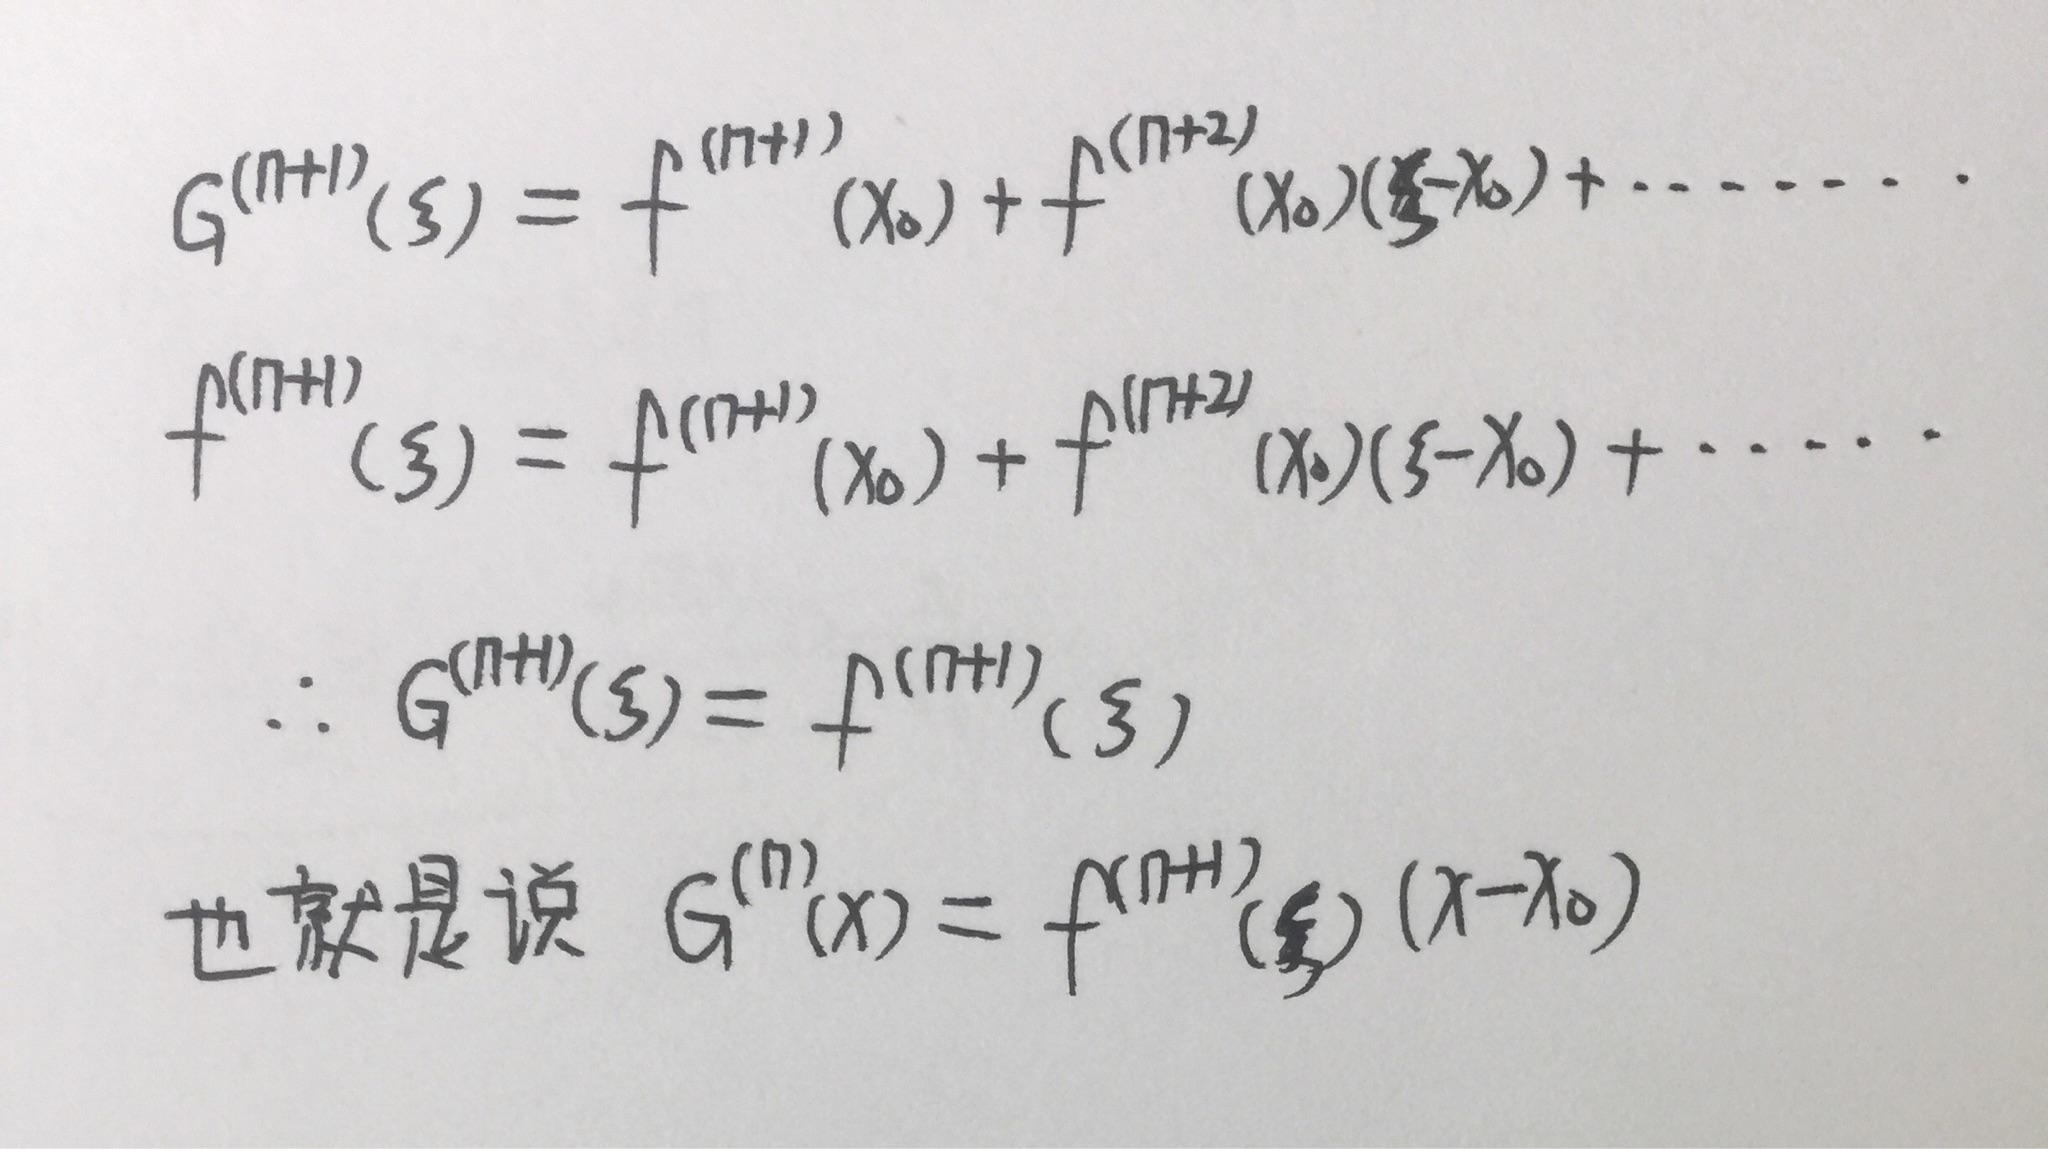 G⁽ⁿ⁺¹⁾(ξ) = f⁽ⁿ⁺¹⁾(x₀) + f⁽ⁿ⁺²⁾(x₀)(ξ-x₀) + ........
f⁽ⁿ⁺¹⁾(ξ) = f⁽ⁿ⁺¹⁾(x₀) + f⁽ⁿ⁺²⁾(x₀)(ξ-x₀) + ......
∴ G⁽ⁿ⁺¹⁾(ξ) = f⁽ⁿ⁺¹⁾(ξ)
也就是说 G⁽ⁿ⁾(x) = f⁽ⁿ⁺¹⁾(ξ)(x-x₀)